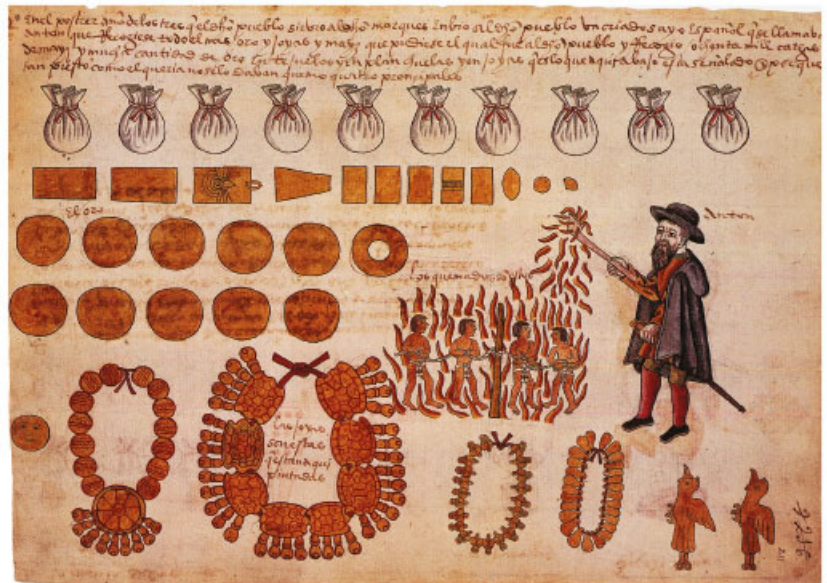 En el postrer año de los tres q̃ el dho pueblo sirvio al dho marques Enbio al dho pueblo Un criado suyo Español q̃ se llamaba
Anton que Recogiese todo el mas oro y Joyas y mas que pudiese el qual fue al dho pueblo y Recogio ochenta mill cargas
de mayz y mucha cantidad de oro En tejuelos y En planchuelas y en joyas ques lo que aqui abajo esta señalado E porque
tan presto como el queria no se lo daban quemo quatro prencipales
El oro
Anton
los quemados son estos
las joyas
son estas
q̃ estan aqui
pintadas